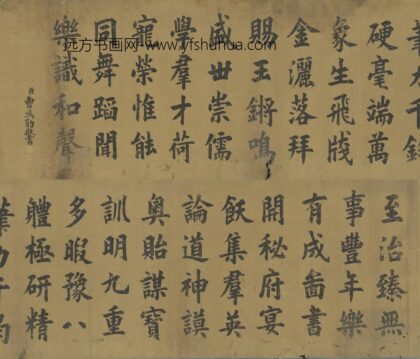 远方书画网-www.yfshuhua.com
筆力千鈞
硬毫端萬
象生飛牋
金灑落拜
賜王鏘鳴
盛世崇儒
學羣才荷
寵榮惟能
同舞蹈聞
樂識和聲
至治臻無
事豐年樂
有成啚書
開秘府宴
飫集羣英
論道神謨
奧貽謀寶
訓明九重
多暇豫八
體極研精
筆力千鈞